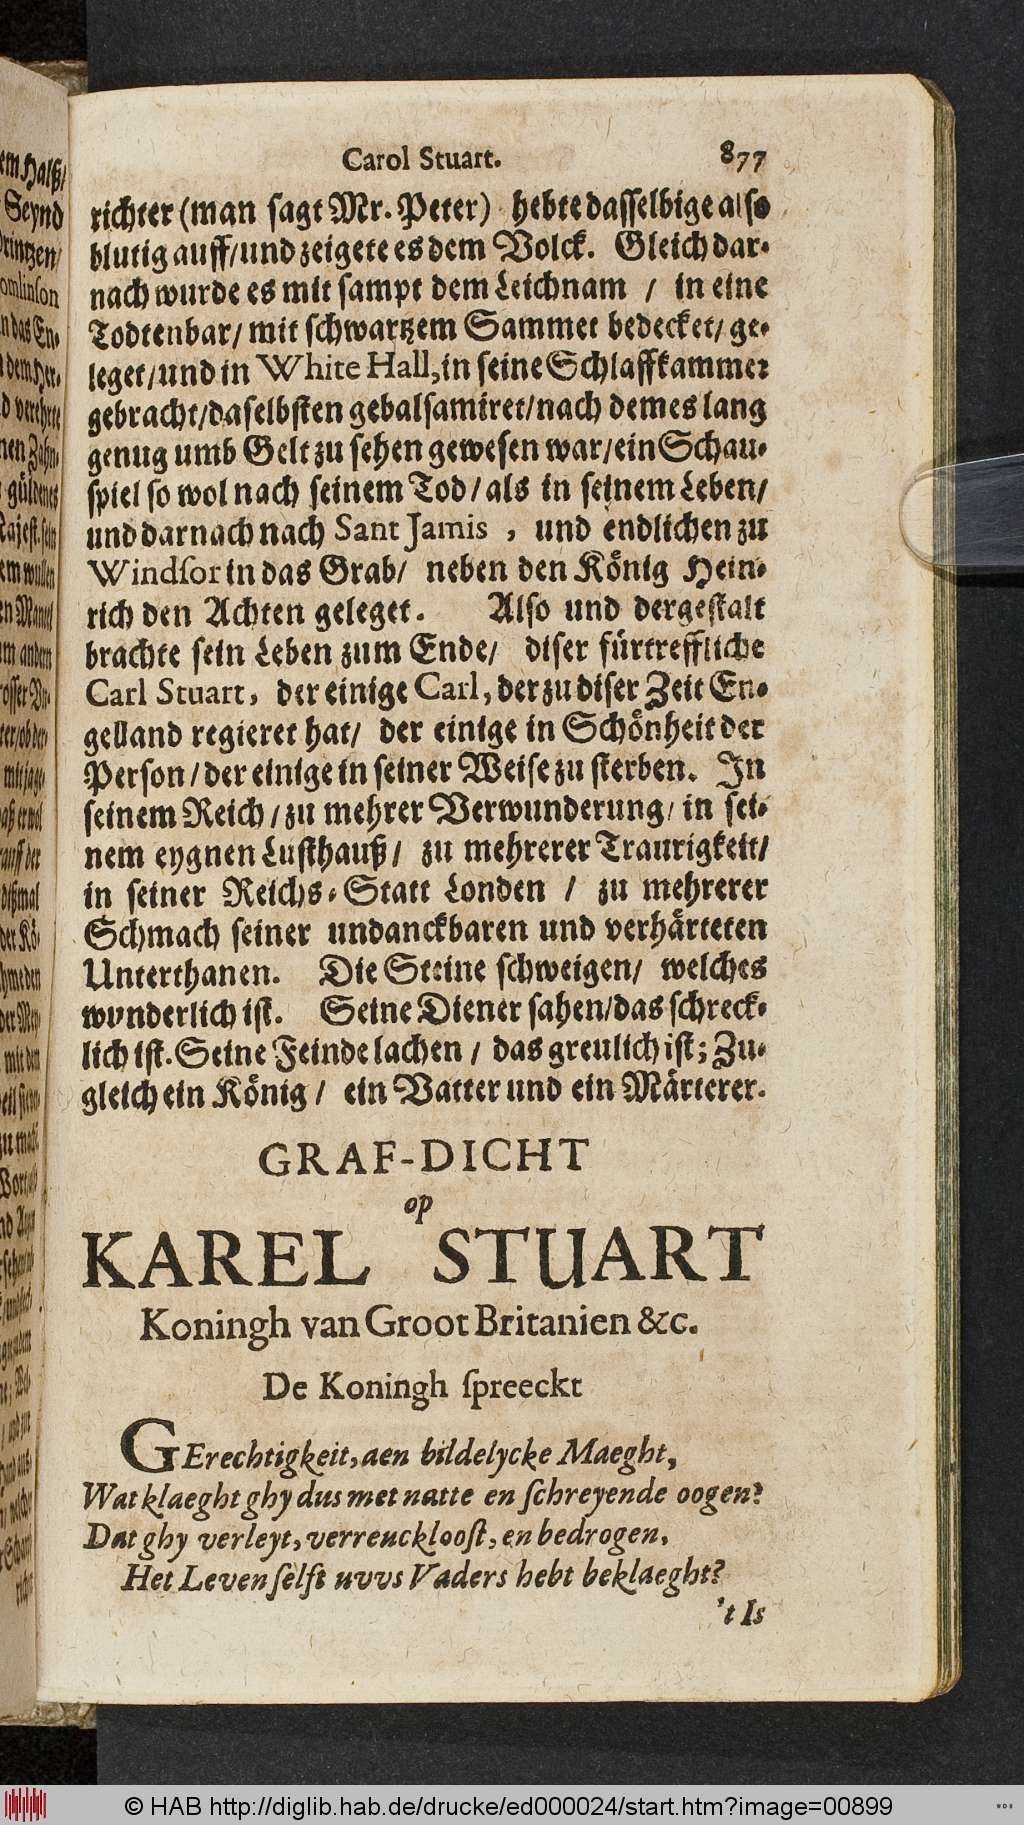 Carol Stuart. 877
richter (man sagt Mr. Peter) hebte dasselbige also
blutig auff/und zeigete es dem Volck. Gleich dar-
nach wurde es mit sampt dem Leichnam / in eine
Todtenbar/ mit schwartzem Sammet bedecket/ ge-
leget/und in White Hall, in seine Schlaffkammer
gebracht/daselbsten gebalsamiret/nach dem es lang
genug umb Gelt zu sehen gewesen war/ein Schau-
spiel so wol nach seinem Tod/als in seinem Leben/
und darnach nach Sant Jamis , und endlichen zu
Windsor in das Grab/ neben den König Hein-
rich den Achten geleget. Also und dergestalt
brachte sein Leben zum Ende/ diser fürtreffliche
Carl Stuart, der einige Carl, der zu diser Zeit En-
gelland regieret hat/ der einige in Schönheit der
Person/der einige in seiner Weise zu sterben. In
seinem Reich/zu mehrer Verwunderung/ in sei-
nem eygnen Lusthauß/ zu mehrerer Traurigkeit/
in seiner Reichs-Statt Londen / zu mehrerer
Schmach seiner undanckbaren und verhärteten
Unterthanen. Die Steine schweigen/ welches
wunderlich ist. Seine Diener sahen/das schreck-
lich ist. Seine Feinde lachen / das greulich ist; Zu-
gleich ein König / ein Vatter und ein Märterer.
GRAF-DICHT
op
KAREL STUART
Koningh van Groot Britanien &c.
De Koningh ſpreeckt
GErechtigkeit, aen bildelycke Maeght,
Wat klaeght ghy dus met natte en ſchreyende oogen?
Dat ghy verleyt, verreuckloost, en bedrogen.
Het Leven ſelfst uvvs Vaders hebt beklaeght?
't Is
© HAB http://diglib.hab.de/drucke/ed000024/start.htm?image=00899